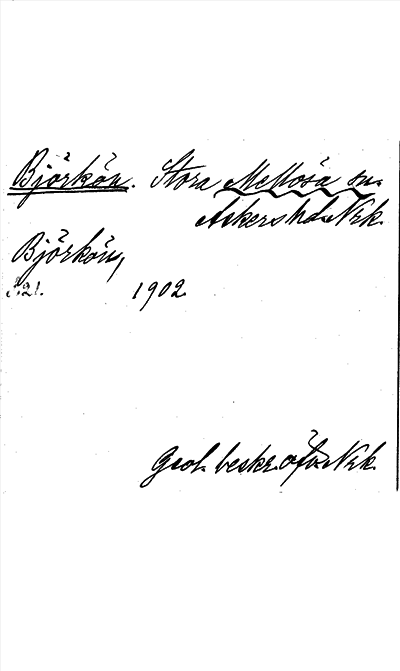 Björkön. Stora Mellösa sn.
Askers hd. Nrk.
Björkön,
s. 21. 1902
Geol. beskr. öfv. Nrk.